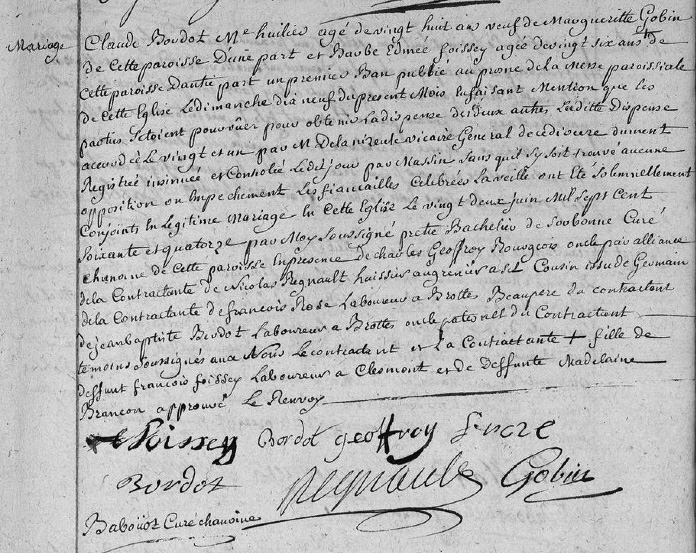 Mariage
Claude Bordot Me huilier agé de vingt huit an veuf de Margueritte Gobin
de Cette paroisse D'une part et Barbe Edmée foissey agée de vingt six ans de
Cette paroisse D'autre part un premier Ban publié au prone de la Messe paroissiale
de Cette Eglise Le dimanche dix neuf du present Mois En faisant Mention que les
parties Setoient pourvûes pour obtenir La dispense des deux autres Laditte Dispense
accordée Le vingt et un par M. Vicaire General de ce diocese dument
Registrée insinuée et Controlée Ledit jour par Massin Sans qu'il sy soit trouvé aucune
opposition ou Empechement Les fiancailles Celebrées La veille ont Eté Solemnellement
Conjoints En Legitime Mariage En Cette Eglise Le vingt deux juin Mil Sept Cent
Soixante et quatorze par Moy Soussigné pretre Bachelier de Sorbonne Curé
chanoine de Cette paroisse En presence de charles Geoffroy Bourgeois oncle par alliance
de la Contractante de Nicolas Regnault huissier au grenier a S.L. Cousin issu de Germain
de la Contractante de francois Rose Laboureur a Brottes Beaupere du contractant
de jean baptiste Bordot Laboureur a Brottes oncle paternel du Contractant
temoins Soussignés avec Nous Le contractant et La Contractante + fille de
deffunt francois foissey Laboureur a Clemont et de Deffunte Madelaine
Brancon approuvé Le Renvoy
foissey Bordot geoffroy f. rose
Bordot Regnault Gobin
Babouot Curé chanoine